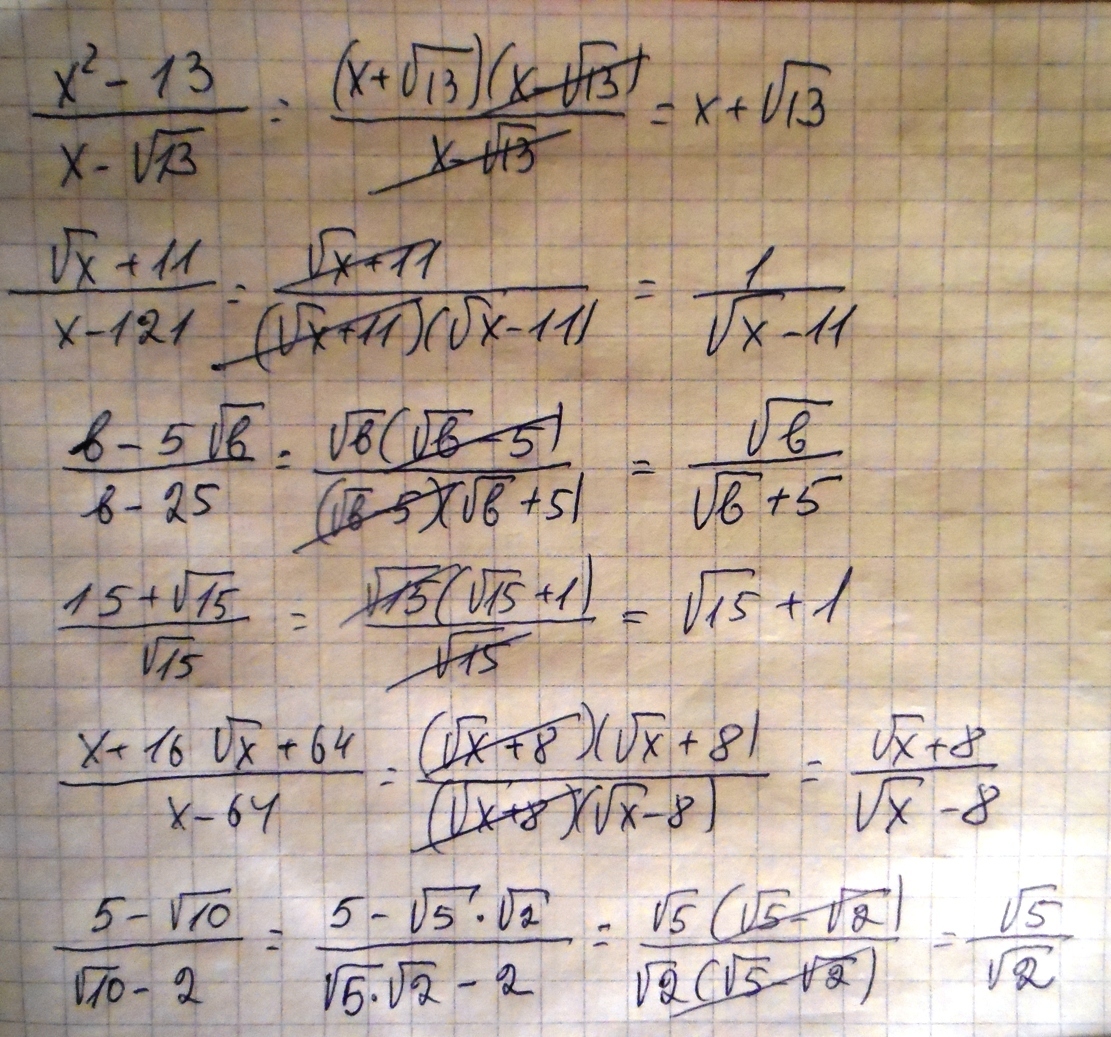 (x² - 13)/(x - √13) = ((x + √13)(x - √13))/(x - √13) = x + √13
(√x + 11)/(x - 121) = (√x + 11)/((√x + 11)(√x - 11)) = 1/(√x - 11)
(в - 5√в)/(в - 25) = (√в(√в - 5))/((√в - 5)(√в + 5)) = √в/(√в + 5)
(15 + √15)/√15 = (√15(√15 + 1))/√15 = √15 + 1
(x + 16√x + 64)/(x - 64) = ((√x + 8)(√x + 8))/((√x + 8)(√x - 8)) = (√x + 8)/(√x - 8)
(5 - √10)/(√10 - 2) = (5 - √5 · √2)/(√5 · √2 - 2) = (√5(√5 - √2))/(√2(√5 - √2)) = √5/√2